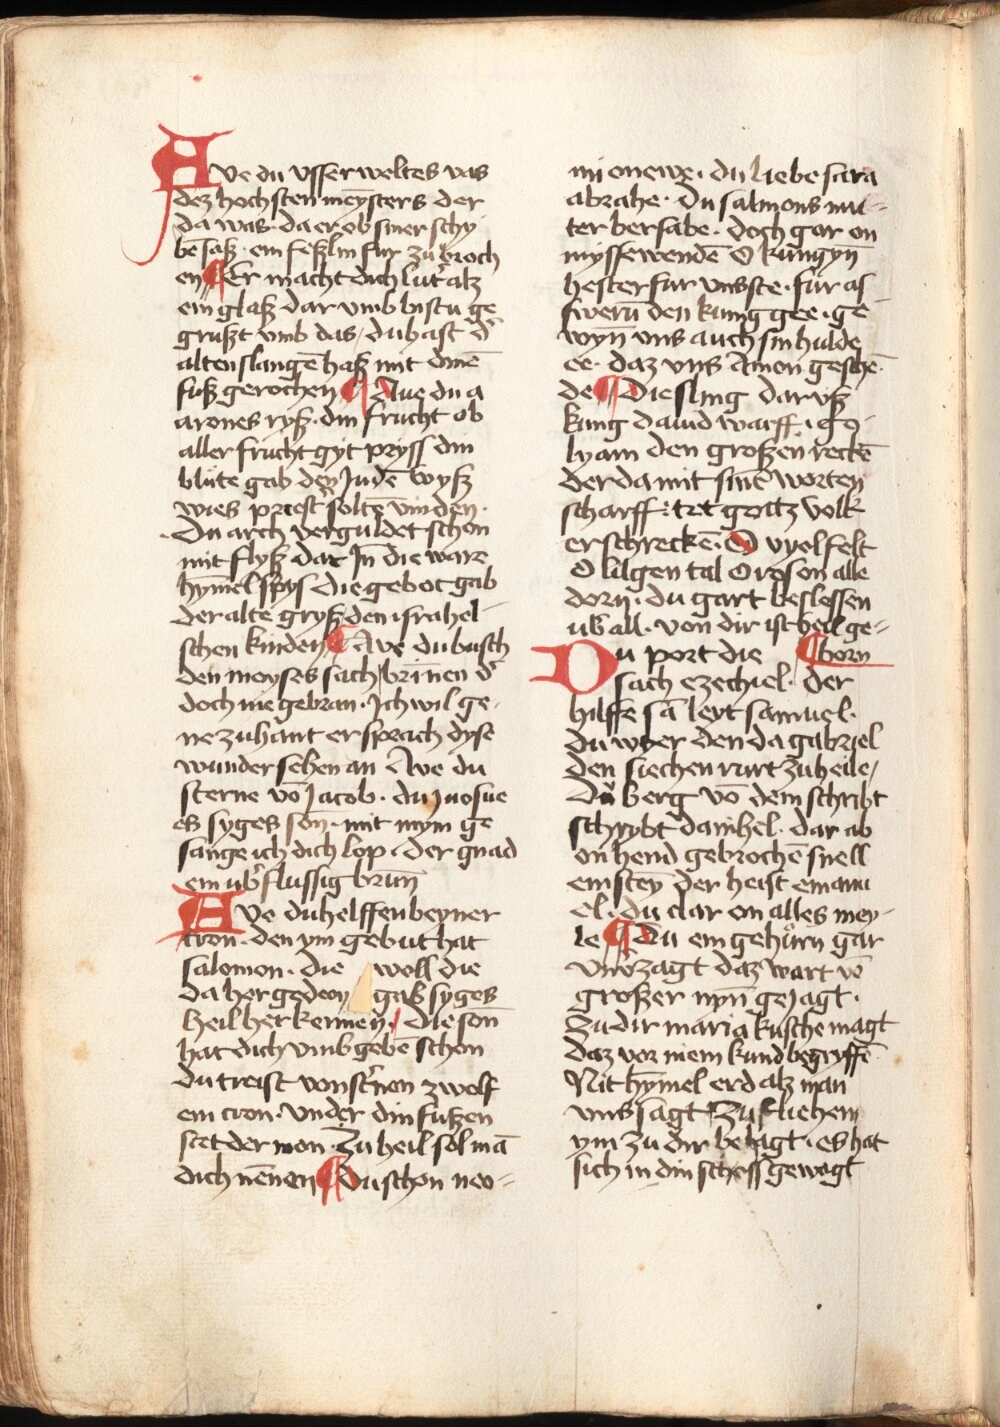 Ave du vsserweltes vas
dez hochsten meysters der
da was · da er ob siner schy
be sasz · ein feszlin fur zubroch
en ¶ Er macht dich luter alz
ein glasz dar vmb bistu ge
gruszt vmb das / du hast d'
alten slangē hasz mit dinē
fusz gerochen ¶ Aue du a
arones rysz · din frucht ob
aller frucht gyt pryss din
blute gab den Judē wysz
wies priest' soltē vinden ·
Du arch verguldet schon
mit flysz dar In die ware
hymel spys die gebot gab
der alte grysz den israhel-
schen kinden ¶ Ave du busch
den moyses sach brinnen d'
doch nie gebran · Ich wil ge-
ne zuhant er sprach dyse
wunder sehen an Ave du
sterne vō Jacob · du Josue
es syges son · mit mym ge
sange ich dich lop · der gnad
ein ub'flussig brun̄
Ave du helffenbeyner
tron · den ym gebut hat
salomon · die woll die
da her gedeon gab syges
heil her kennen / die son
hat dich vmb gebē schon
du treist von st'nen zwolf
ein cron · vnder din fuszen
stet der mon · Zu heil sol mā
dich nēnen ¶ Du schon neo-
mi onewe · du liebe sara
abrahe · Du salmons mu-
ter bersabe · doch gar on
myssewendē O kungyn̄
hester fur vns ste · fur as
swerū den kunig gee · ge
wyn̄ vns auch sin hulde
ee · daz vns Amon geschē-
de ¶ Die sling dar vsz
kung dauid warff · go-
lyam den groszen reckē
der da mit sinē worten
scharff : tet gottz volk
erschreckē · O vyolfelt
O lilgen tal O ros on alle
dorn · du gart beslossen
ub' all · von dir ist heil ge-
¶ born
Du port die
sach ezechiel · der
hilffe sā leyt samuel ·
du wyer den da gabriel
den siechen rurt zu heile /
Du berg vō dem schribt
schrybt danihel · dar ab
on hend gebrochē snell
ein steȳ der heist emanu
el · du clar on alles mey-
le ¶ Du ein gehurn gar
vnv'zagt daz wart vō
groszer mȳn gejagt ·
Zu dir maria kusche magt
daz vor niem kund begryffē
Nit hymel erd alz man
vns sagt Zu fliehem
ym zu dir behagt · es hat
sich in din schoss gewegt